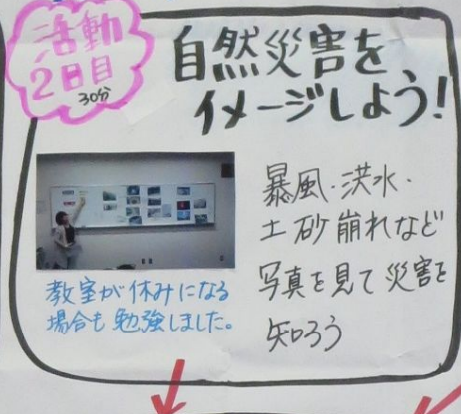 活動
2日目
30分
自然災害を
イメージしよう!
暴風・洪水・
土砂崩れなど
写真を見て災害を
知ろう
教室が休みになる
場合も勉強しました。